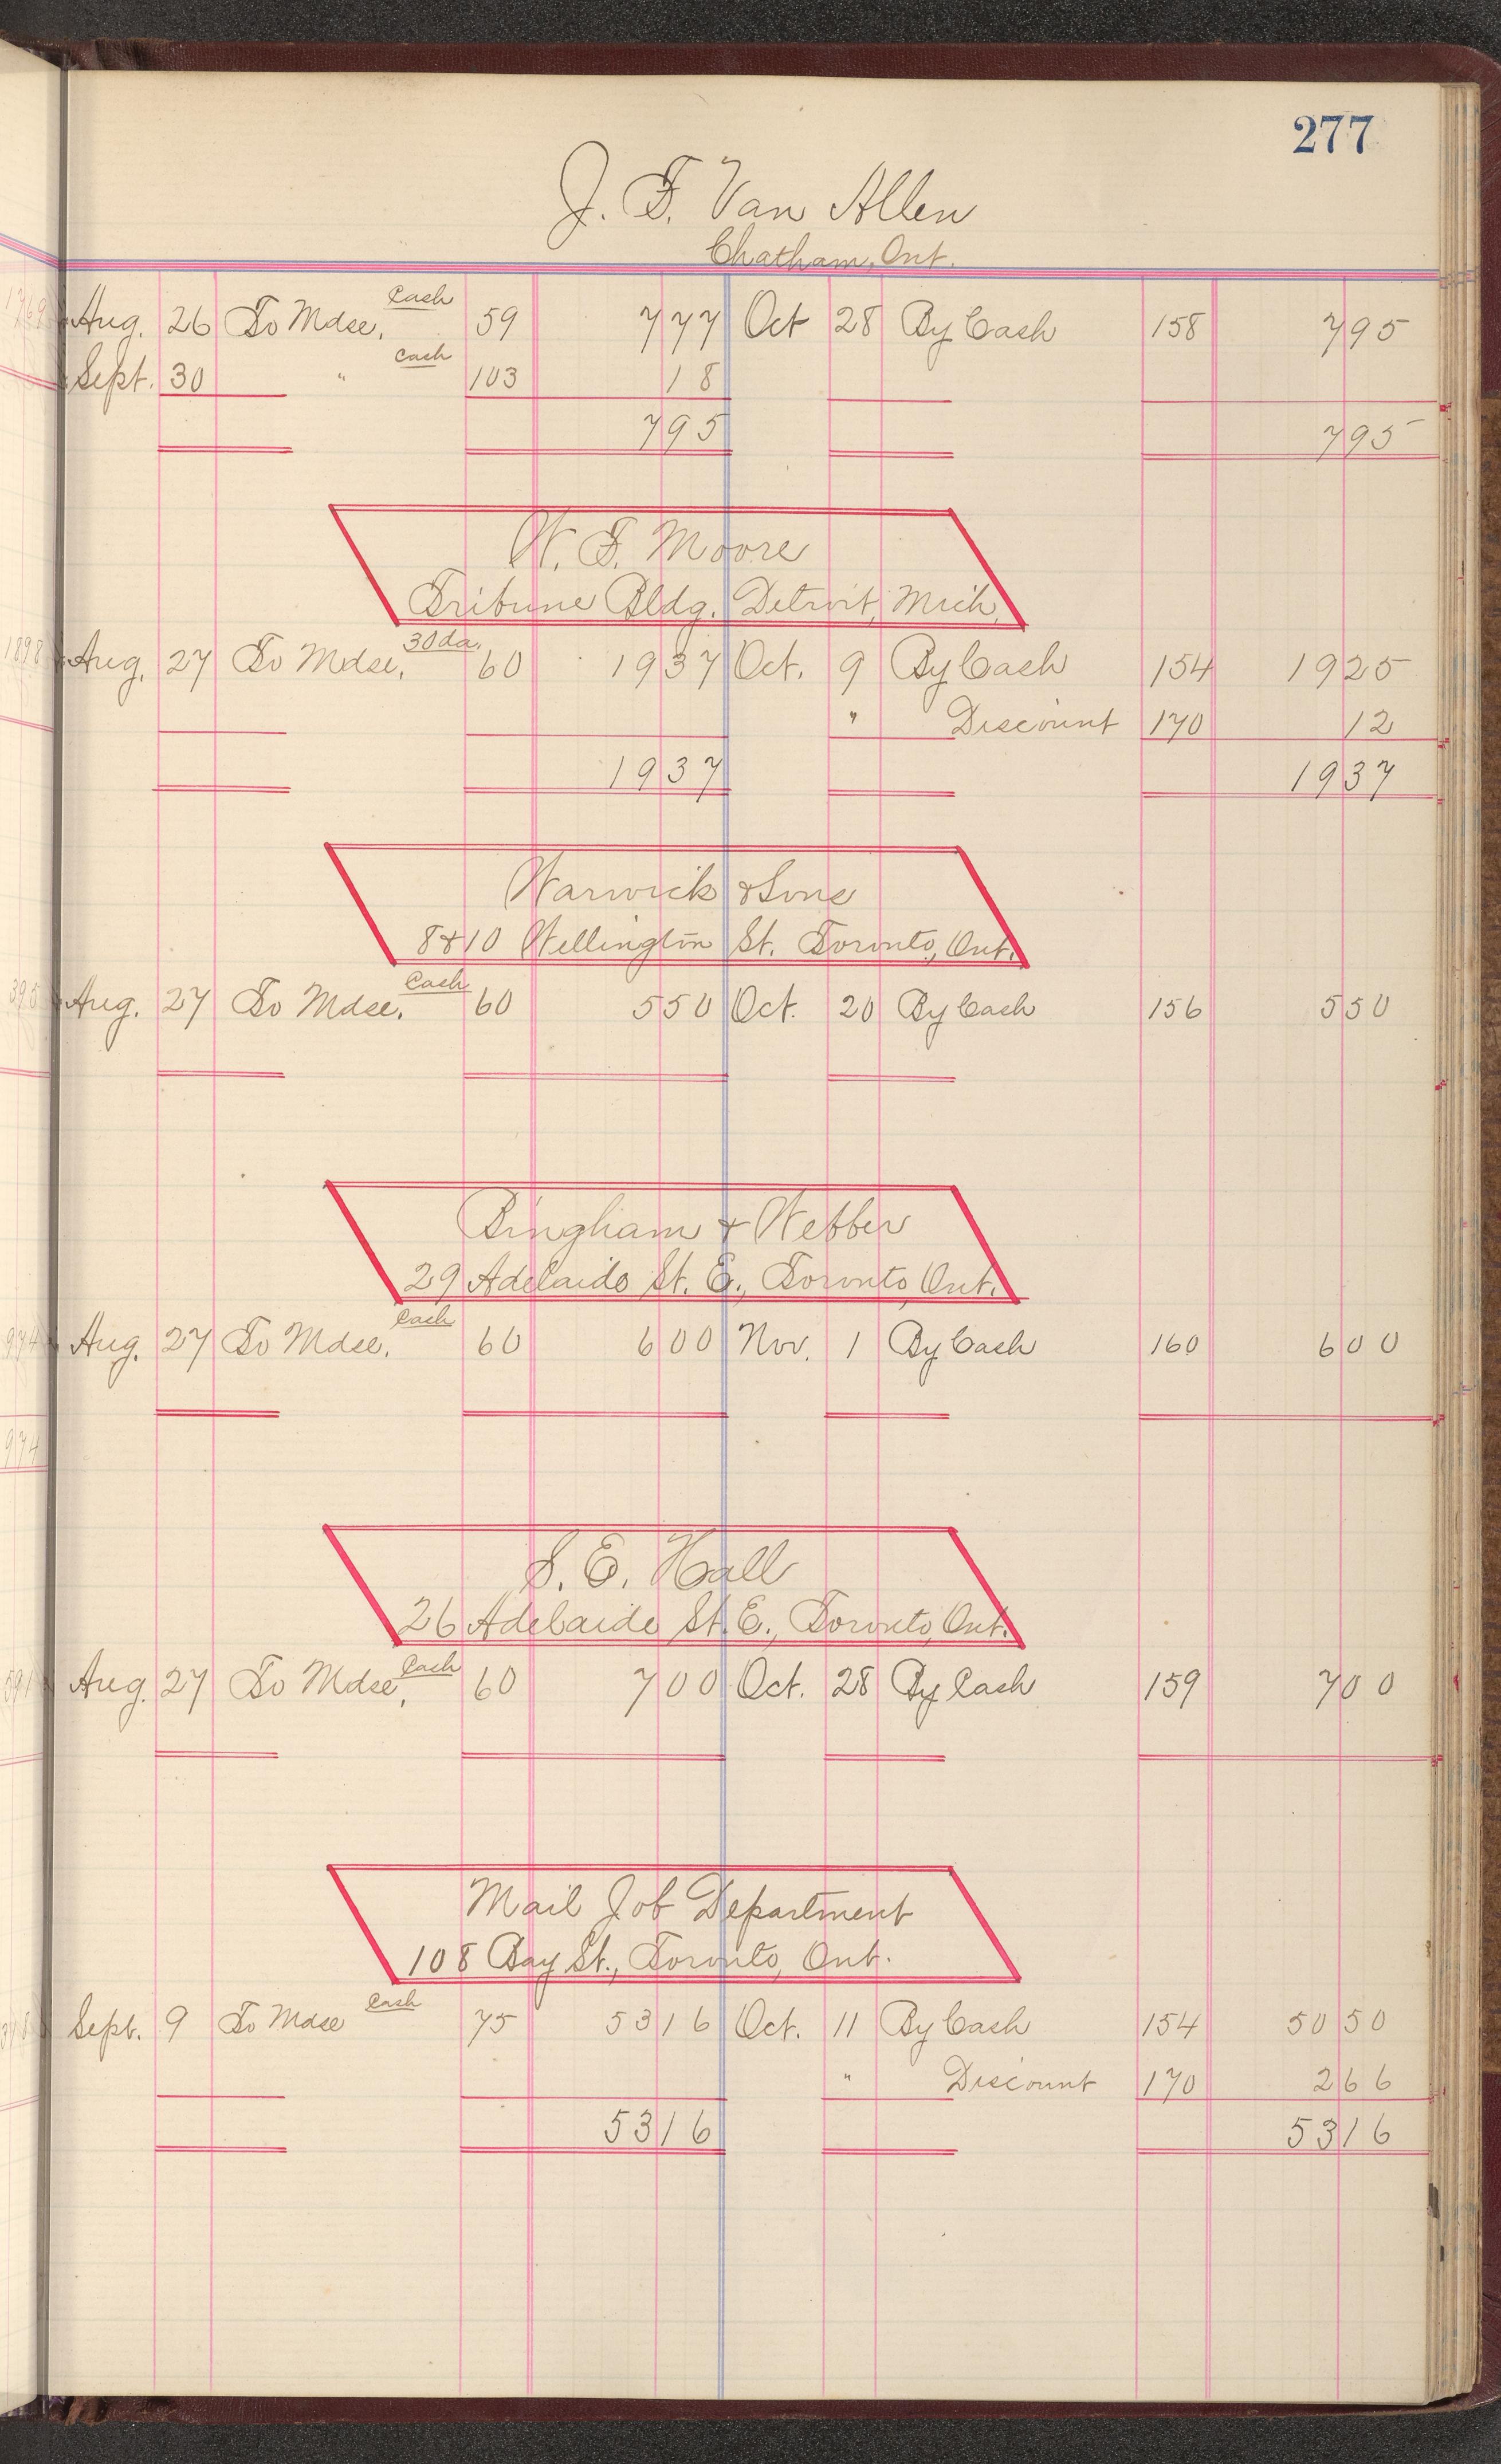 277
J. F. Van Allen
Chatham, Ont.
Aug. 26 To Mdse. Cash 59 7 77 Oct 28 By Cash 158 7 95
Sept. 30 " Cash 103 18
7 95 7 95
W. F. Moore
Tribune Bldg. Detroit, Mich.
Aug. 27 To Mdse. 30 da. 60 19 37 Oct. 9 By Cash 154 19 25
" Discount 170 12
19 37 19 37
Warwick & Sons
8 & 10 Wellington St. Toronto, Ont.
Aug. 27 To Mdse. Cash 60 5 50 Oct. 20 By Cash 156 5 50
Bingham & Webber
29 Adelaide St. E., Toronto, Ont.
Aug. 27 To Mdse. Cash 60 6 00 Nov. 1 By Cash 160 6 00
S. E. Hall
26 Adelaide St. E., Toronto, Ont.
Aug. 27 To Mdse, Cash 60 7 00 Oct. 28 By Cash 159 7 00
Mail Job Department
108 Bay St., Toronto, Ont.
Sept. 9 To Mdse Cash 75 53 16 Oct. 11 By Cash 154 50 50
" Discount 170 2 66
53 16 53 16